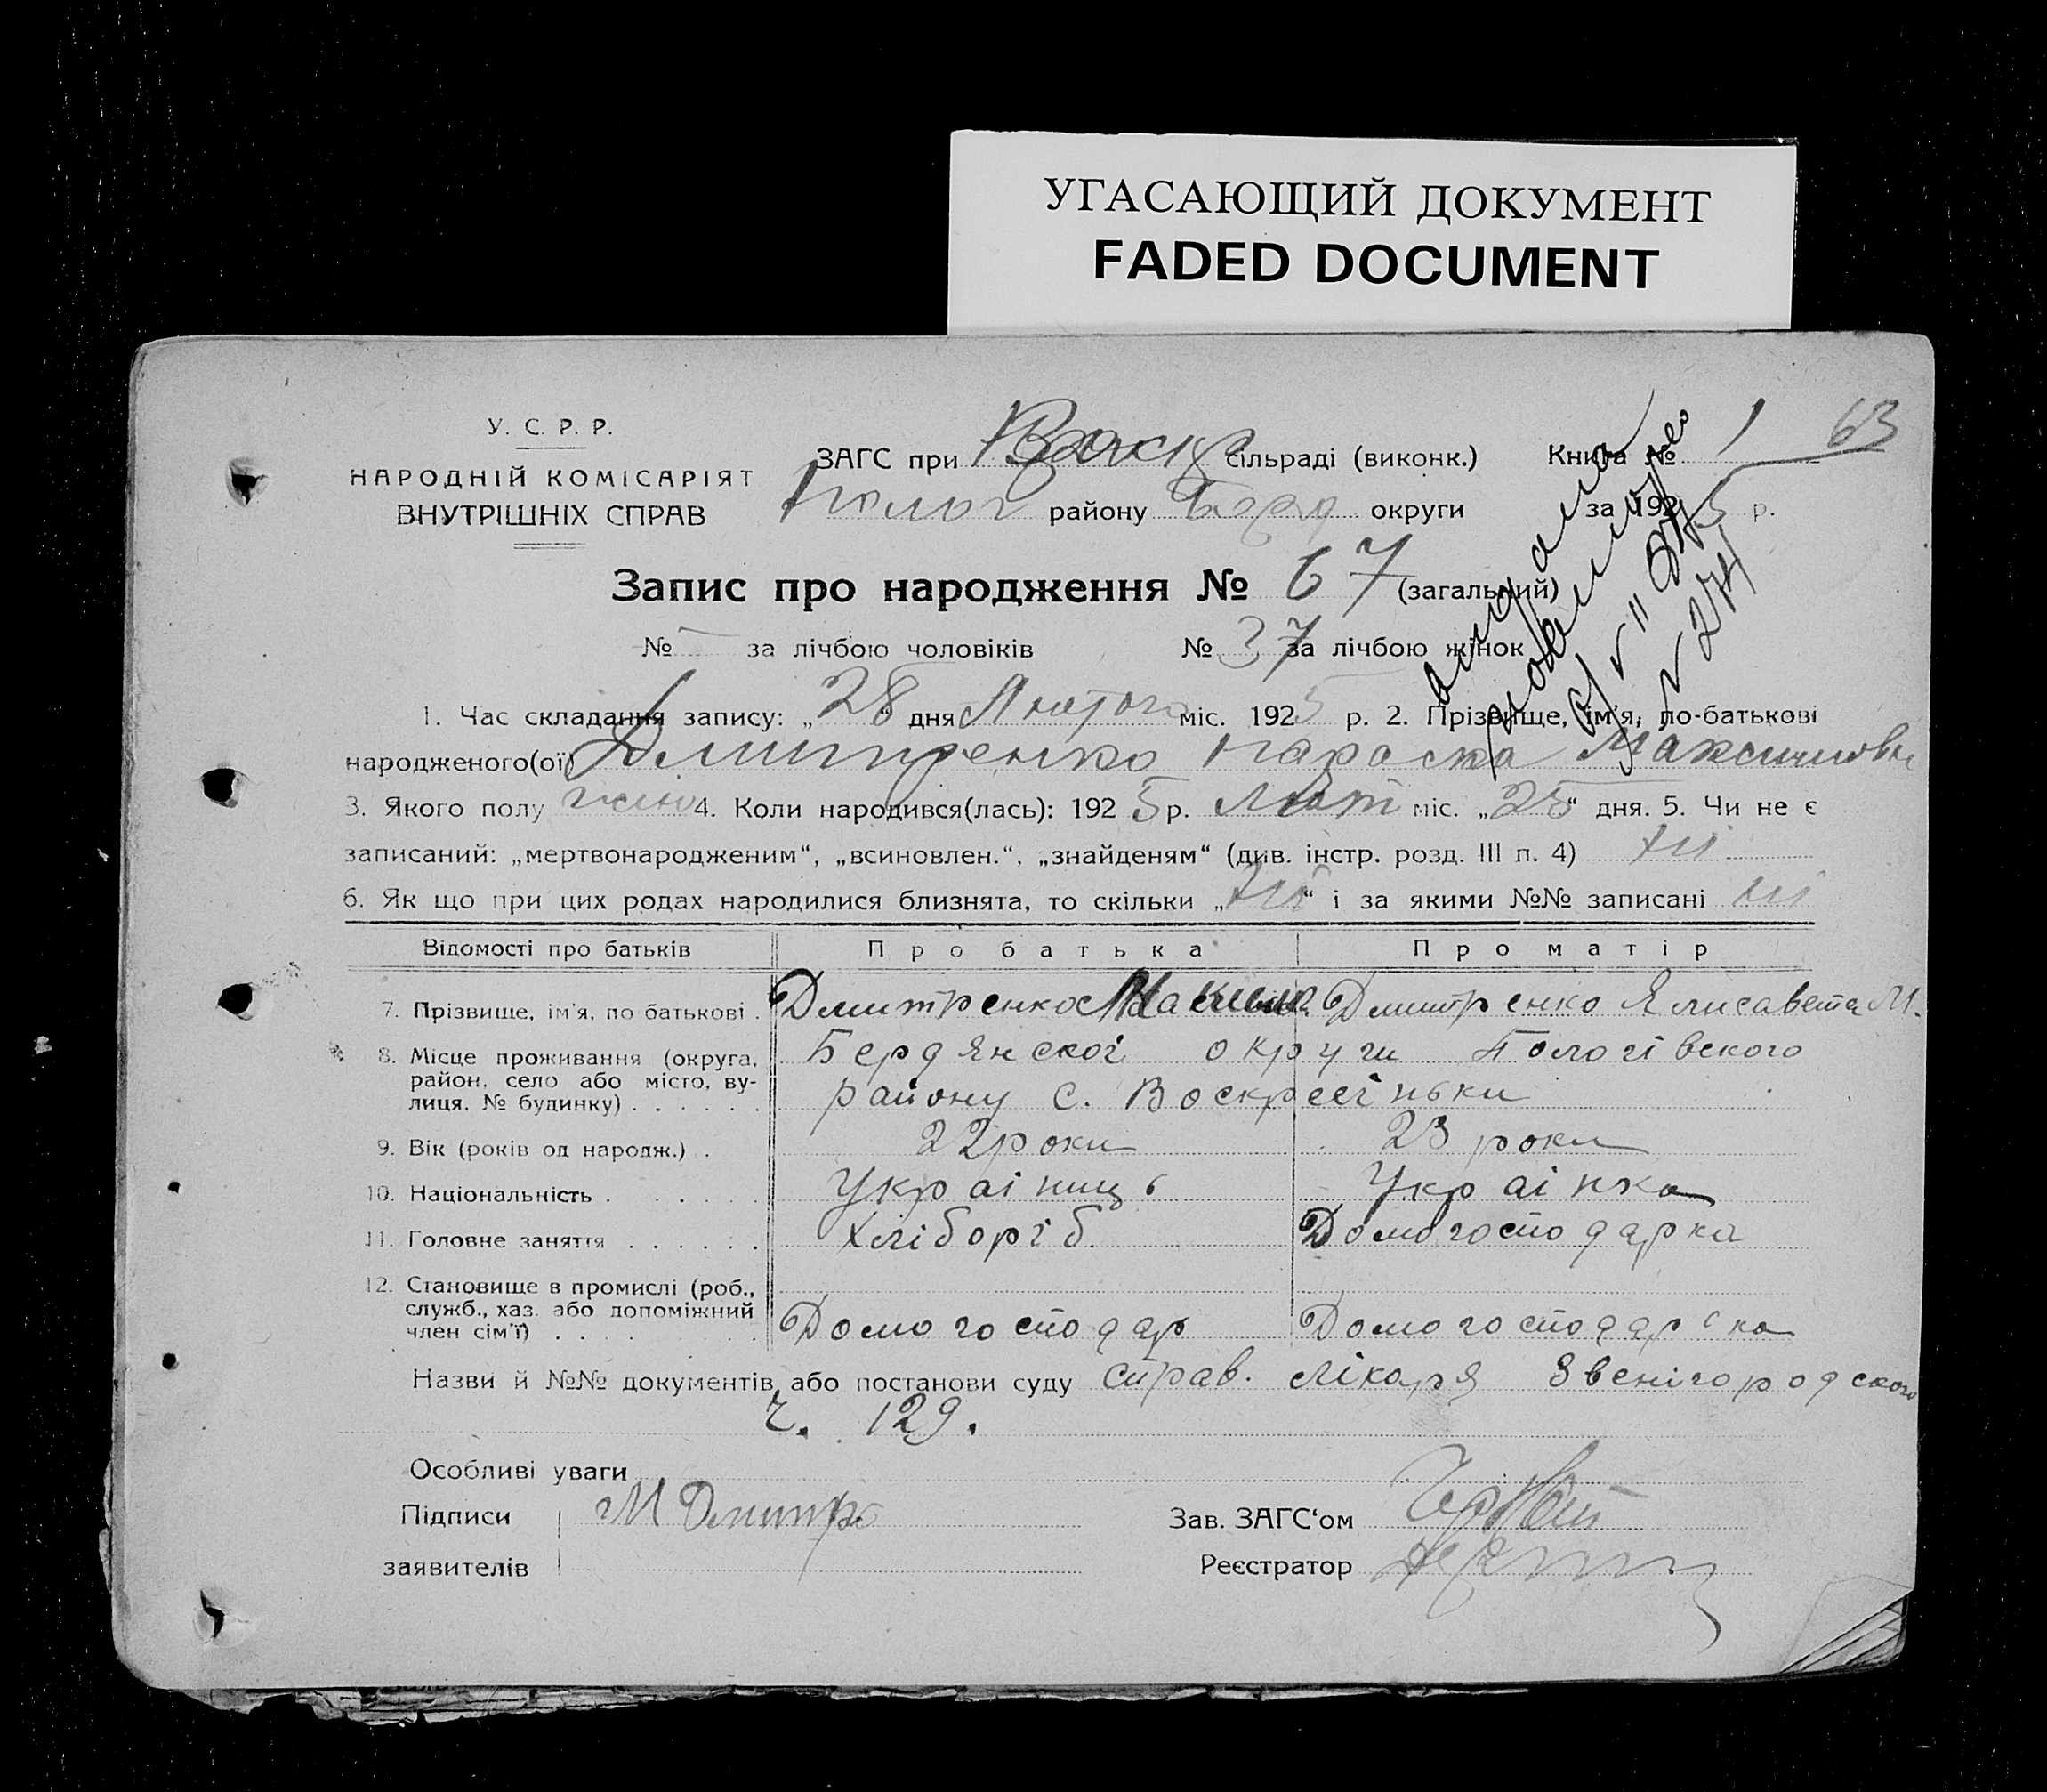 УГАСАЮЩИЙ ДОКУМЕНТ
FADED DOCUMENT
63
У. С. Р. Р.
НАРОДНІЙ КОМІСАРІЯТ
ВНУТРІШНІХ СПРАВ
ЗАГС при сільраді (виконк.) Книга № 1
Полог району Берд округи за 1925 р.
Запис про народження № 67 (загальний)
№ — за лічбою чоловіків № 37 за лічбою жінок
1. Час складання запису: „28“ дня Лютого міс. 1925 р. 2. Прізвище, ім'я, по-батькові
народженого(ої) Дмитренко Параска Максимовн
3. Якого полу жіно 4. Коли народився(лась): 1925 р. Лют міс. „25“ дня. 5. Чи не є
записаний: „мертвонародженим“, „всиновлен.“, „знайденям“ (див. інстр. розд. III п. 4) ні
6. Як що при цих родах народилися близнята, то скільки „ні“ і за якими №№ записані ні
Відомості про батьків Про батька Про матір
7. Прізвище, ім'я, по батькові . Дмитренко Максим Дмитренко Ялисавета М.
8. Місце проживання (округа, Бердянскої округи Пологівского
район, село або місто, ву- району с. Воскресіньки
лиця, № будинку) . . . . . .
9. Вік (років од народж.) . 22 роки 23 роки
10. Національність . . . . . Украіниць Украінка
11. Головне заняття . . . . . . Хлібороб. Домогосподарка
12. Становище в промислі (роб.,
служб., хаз. або допоміжний
член сім'ї) . . . . . . Домогосподар Домогосподарка
Назви й №№ документів або постанови суду справ. лікаря Звенігородского
ч. 129.
Особливі уваги
Підписи М Дмитр Зав. ЗАГС‘ом
заявителів Реєстратор